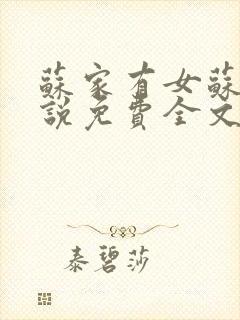 蘇家有女蘇
說免費全文
泰碧莎